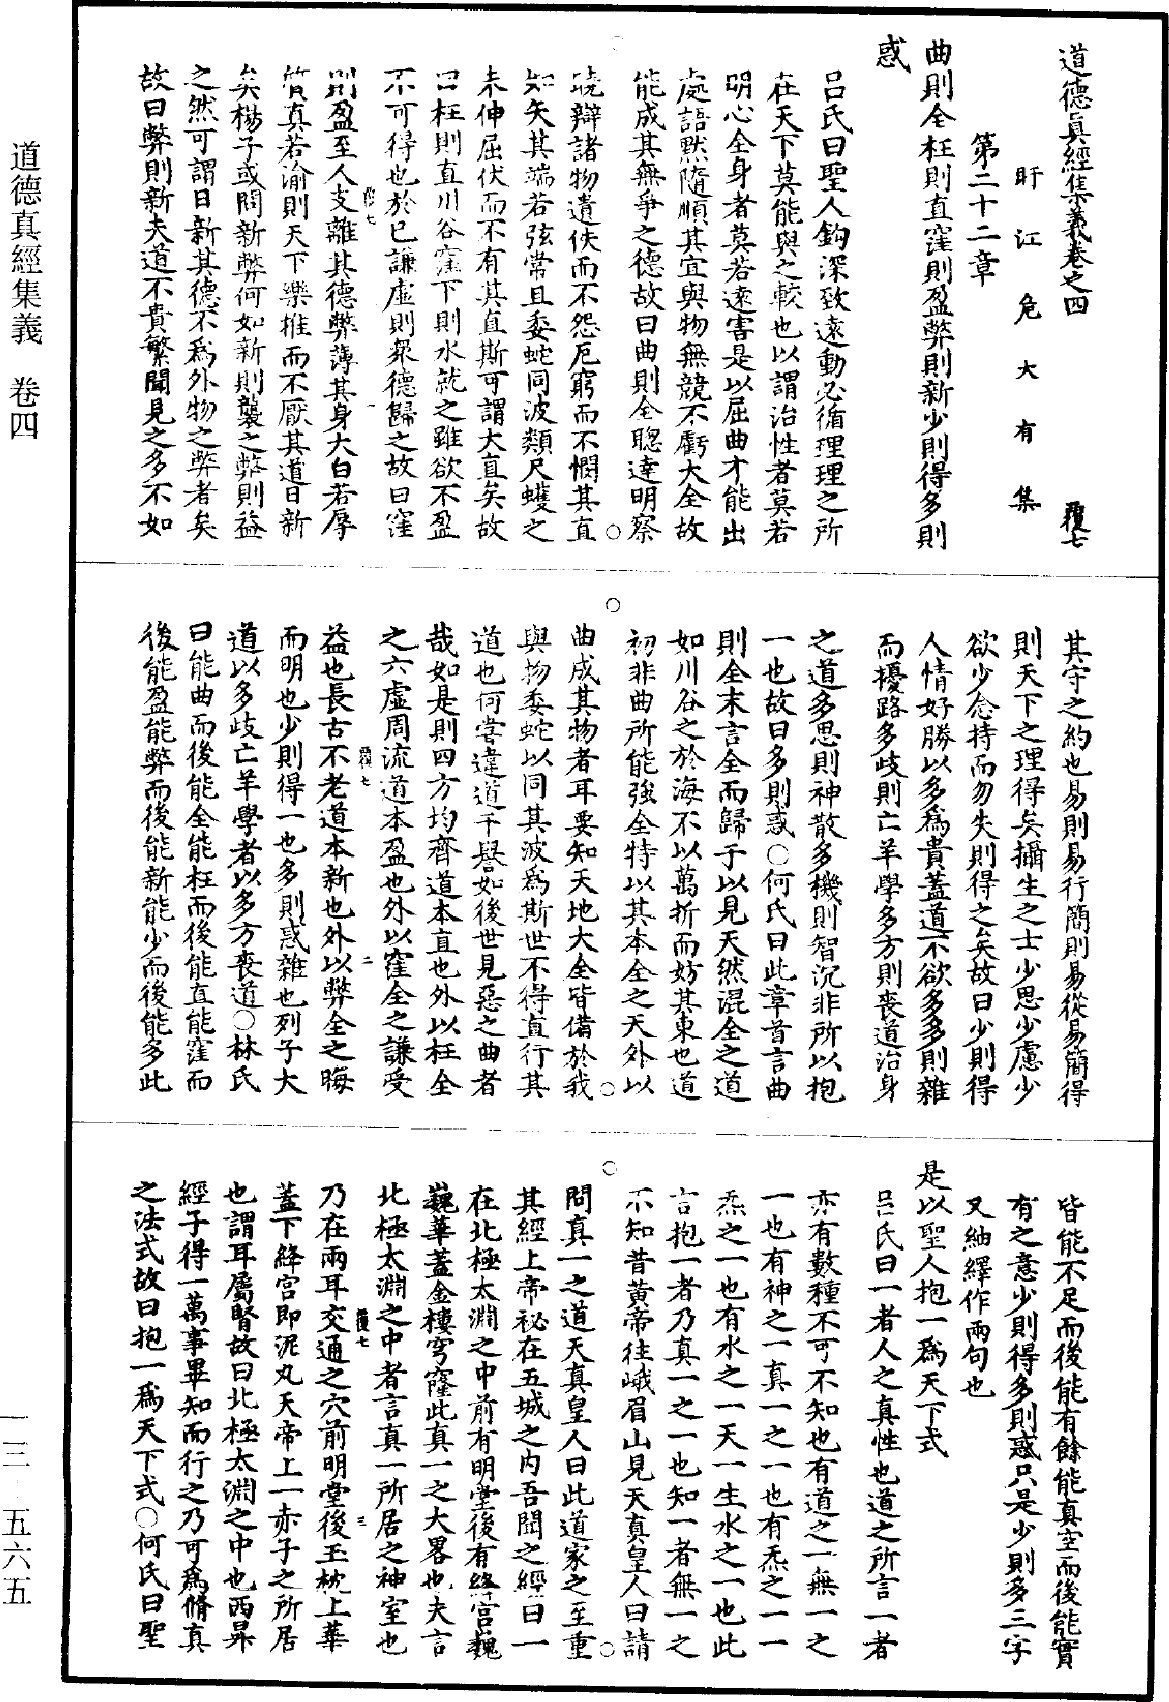 道德真經集義卷之四　覆七
盱江危大有集
第二十二章
曲則全枉則直窪則盈弊則新少則得多則
惑
呂氏曰聖人鈎深致遠動必循理理之所
在天下莫能與之較也以謂治性者莫若
明心全身者莫若遠害是以屈曲才能出
處語默隨順其宜與物無競不虧大全故
能成其無爭之德故曰曲則全聰達明察
曉辯諸物遺佚而不怨厄窮而不憫其直
如矢其端若弦常且委蛇同波類尺蠖之
未伸屈伏而不有其直斯可謂大直矣故
曰枉則直川谷窪下則水就之雖欲不盈
不可得也於己謙虛則衆德歸之故曰窪
則盈至人支離其德弊薄其身大白若辱
質真若渝則天下樂推而不厭其道日新
矣楊子或問新弊何如新則襲之弊則益
之然可謂日新其德不爲外物之弊者矣
故曰弊則新夫道不貴繁聞見之多不如
其守之約也易則易行簡則易從易簡得
則天下之理得矣攝生之士少思少慮少
欲少念持而勿失則得之矣故曰少則得
人情好勝以多爲貴蓋道不欲多多則雜
而擾路多歧則亡羊學多方則喪道治身
之道多思則神散多機則智沉非所以抱
一也故曰多則惑○何氏曰此章首言曲
則全末言全而歸于以見天然混全之道
如川谷之於海不以萬折而妨其東也道
初非曲所能強全特以其本全之天外以
曲成其物者耳要知天地大全皆備於我
與物委蛇以同其波爲斯世不得直行其
道也何嘗違道干譽如後世見惡之曲者
哉如是則四方均齊道本直也外以枉全
之六虛周流道本盈也外以窪全之謙受
益也長古不老道本新也外以弊全之晦
而明也少則得一也多則惑雜也列子大
道以多歧亡羊學者以多方喪道○林氏
曰能曲而後能全能枉而後能直能窪而
後能盈能弊而後能新能少而後能多此
皆能不足而後能有餘能真空而後能實
有之意少則得多則惑只是少則多三字
又紬繹作兩句也
是以聖人抱一爲天下式
呂氏曰一者人之真性也道之所言一者
亦有數種不可不知也有道之一無一之
一也有神之一真一之一也有炁之一一
炁之一也有水之一天一生水之一也此
言抱一者乃真一之一也知一者無一之
不知昔黃帝往峨眉山見天真皇人曰請
問真一之道天真皇人曰此道家之至重
其經上帝祕在五城之内吾聞之經曰一
在北極太淵之中前有明堂後有絳宮巍
巍華蓋金樓穹窿此真一之大畧也夫言
北極太淵之中者言真一所居之神室也
乃在兩耳交通之穴前明堂後玉枕上華
蓋下絳宮即泥丸天帝上一赤子之所居
也謂耳屬腎故曰北極太淵之中也西昇
經子得一萬事畢知而行之乃可爲脩真
之法式故曰抱一爲天下式○何氏曰聖
道德真經集義　卷四
一三—五六五